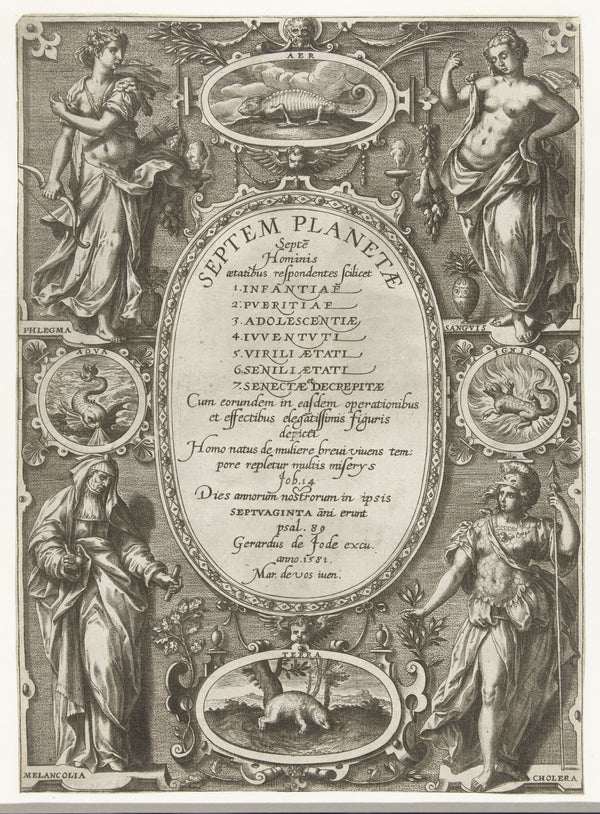 AER
SEPTEM PLANETÆ
Septē
Hominis
ætatibus respondentes scilicet
1. INFANTIAE
2. PVERITIAE
3. ADOLESCENTIÆ
4. IVVENTVTI
5. VIRILI ÆTATI
6. SENILI ÆTATI
7. SENECTÆ et DECREPITÆ
Cum eorundem in easdem operationibus
et effectibus elegatissimis figuris
depicti
Homo natus de muliere breui viuens tem:
pore repletur multis miserys
Job. 14
Dies annorum nostrorum in ipsis
SEPTVAGINTA āni erunt
psal. 89
Gerardus de Jode excu.
anno. 1581.
Mar. de vos inven.
PHLEGMA
SANGVIS
AQVA
IGNIS
TERRA
MELANCOLIA
CHOLERA